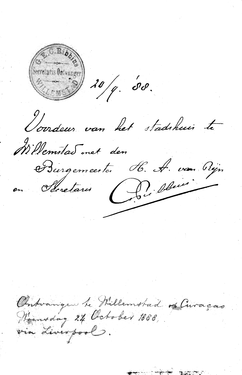 G.E.C. Ribbius
Secretaris Ontvanger
WILLEMSTAD
20/9. '88.
Voordeur van het stadshuis te
Willemstad met den
Burgemeester H. A. van Rijn
en Secretaris
Ontvangen te Willemstad Curaçao
Woensdag 24 October 1888
via Liverpool.